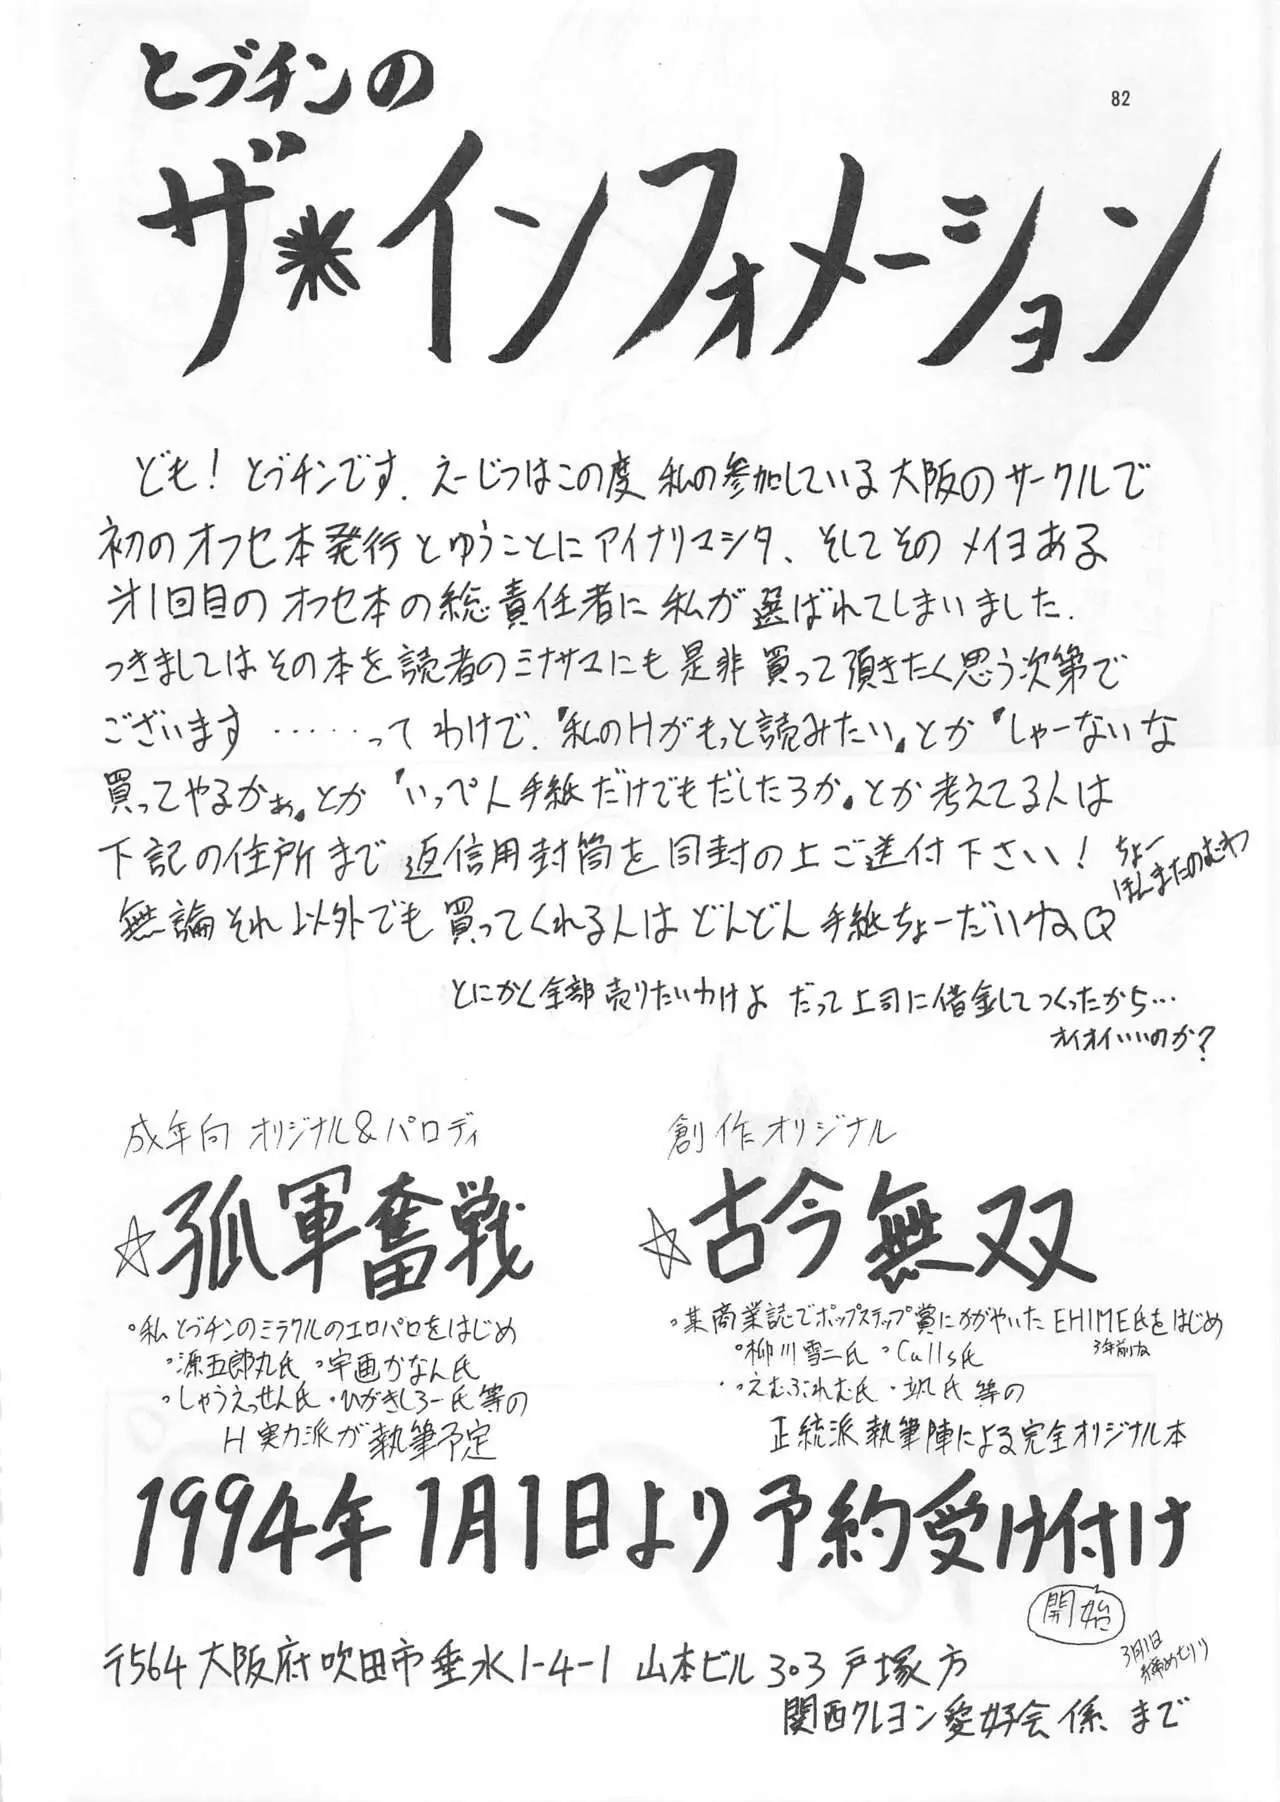 82
とブチンの
ザ*インフォメーション
ども!とブチンです.えーじつはこの度 私の参加している大阪のサークルで
初のオフセ本発行とゆうことにアイナリマシタ、そしてそのメイヨある
才1回目のオフセ本の総責任者に私が選ばれてしまいました.
つきましてはその本を読者のミナサマにも是非買って頂きたく思う次第で
ございます……ってわけで.『私のHがもっと読みたい』とか『しゃーないな
買ってやるかぁ』とか『いっぺん手紙だけでもだしたろか』とか考えてる人は
下記の住所まで返信用封筒を同封の上ご送付下さい!ちょー
ほんまたのむわ
無論それ以外でも買ってくれる人はどんどん手紙ちょーだいけね
とにかく全部売りたいわけよ だって上司に借金してつくったから…
オイオイいいのか?
成年向 オリジナル&パロディ
☆孤軍奮戦
・私とブチンのミラクルのエロパロをはじめ
・源五郎丸氏・宇画かなん氏
・しゃうえっせん氏・ひがきしろー氏等の
H実力派が執筆予定
創作オリジナル
☆古今無双
・某商業誌でポップステップ賞にかがやいたEHIME氏をはじめ
3年前ね
・柳川雪二氏・Calls氏
・えむぶれむ氏・颯氏等の
正統派執筆陣による完全オリジナル本
1994年1月1日より予約受け付け
開始
〒564大阪府吹田市垂水1-4-1 山本ビル303戸塚方
3月1日
締めきり
関西クレヨン愛好会係まで